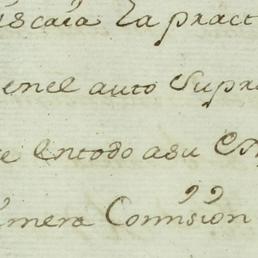 iscaìa la pract
enel auto Supr
e entodo asu C
imera Comisión